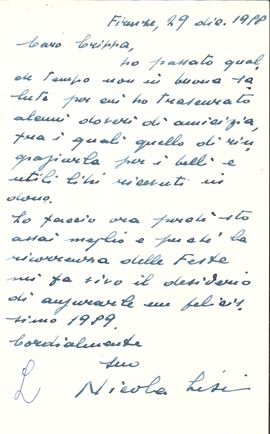 Firenze, 29 dic. 1988
Caro Crippa,
ho passato qual
che tempo non in buona sa
lute per cui ho trascurato
alcuni doveri di amicizia,
fra i quali quello di rin
graziarla per i belli e
utili libri ricevuti in
dono.
Lo faccio ora perché sto
assai meglio e perché la
ricorrenza delle Feste
mi fa vivo il desiderio
di augurarle un felicis
simo 1989.
Cordialmente
suo
Nicola Lisi
L